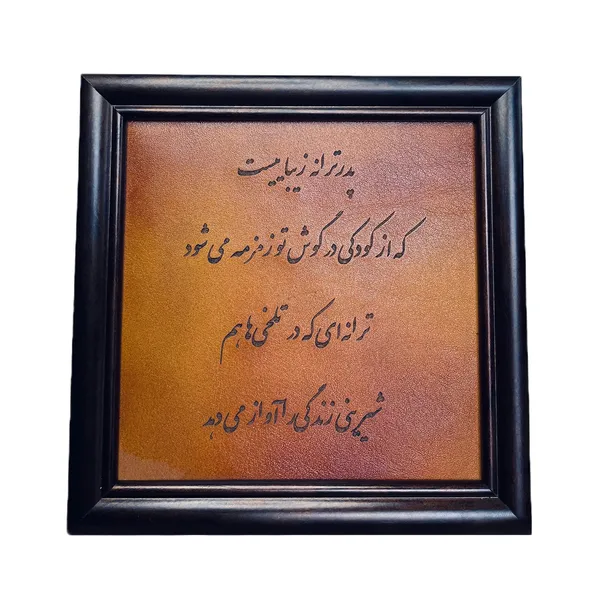 پدر ترانه زیباییست
که از کودکی در گوش تو زمزمه می شود
ترانه ای که در تلخی ها هم
شیرینی زندگی را آواز می دهد